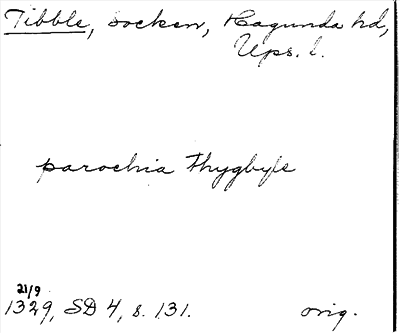 Tibble, socken, Hagunda hd,
Ups. l.
parochia Thygbyle
21/9
1329, SD 4, s. 131. orig.